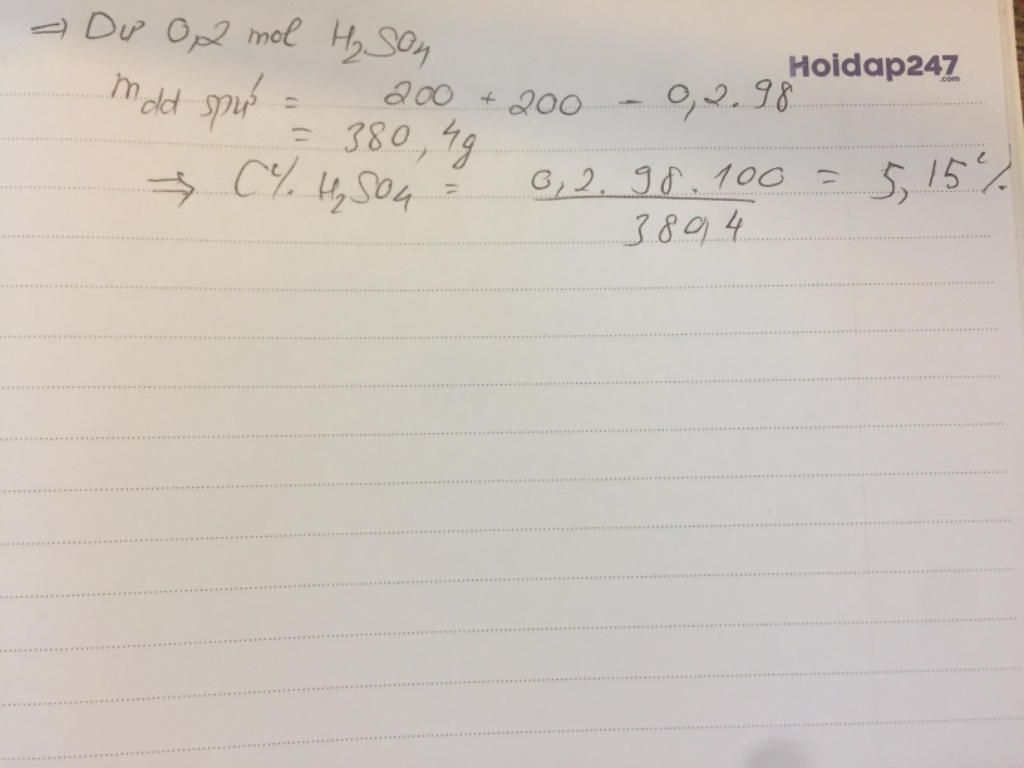 ⇒ Dư 0,2 mol H₂SO₄
Hoidap247
.com
mdd spứ = 200 + 200 - 0,2.98
= 380,4g
⇒ C% H₂SO₄ = 0,2.98.100 / 380,4 = 5,15%